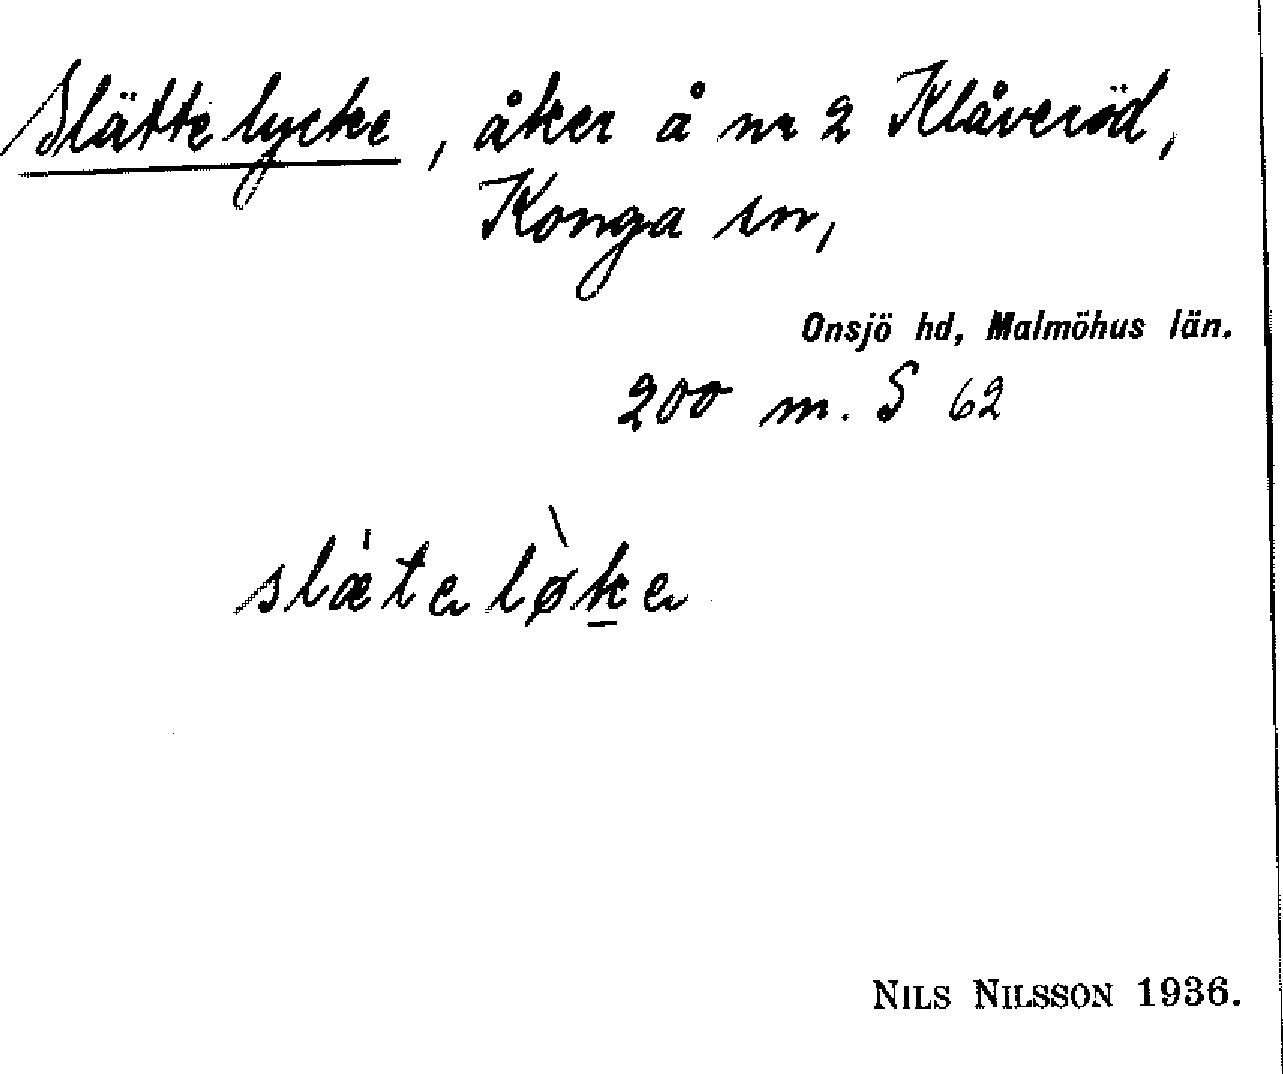 Slättelycke, åker å nr 2 Klåveröd,
Konga sn,
Onsjö hd, Malmöhus län.
200 m. S 62
slæ̍teløk̠e
NILS NILSSON 1936.